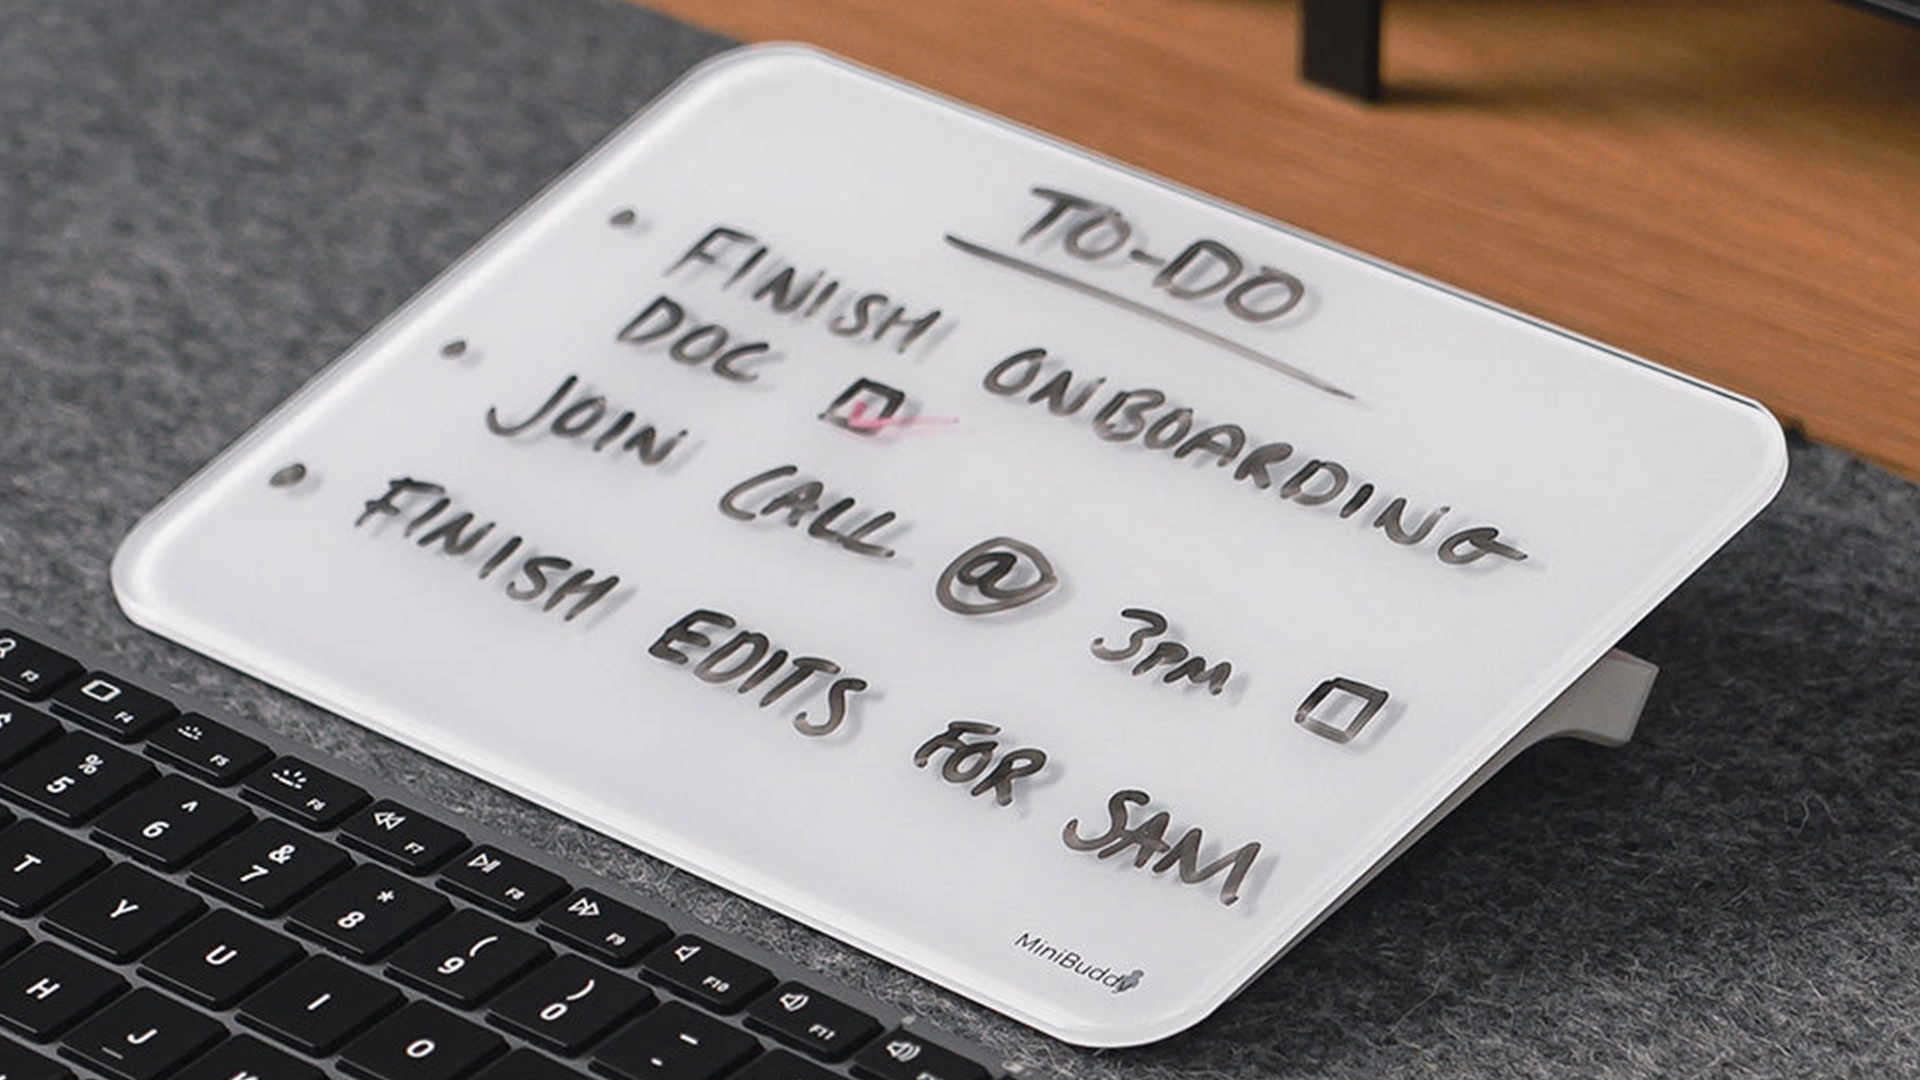 TO-DO
• FINISH ONBOARDING
DOC ☑
• JOIN CALL @ 3PM ☐
• FINISH EDITS FOR SAM
MiniBuddy
F3
F4
F5
F6
F7
F8
F9
F10
F11
$
% 5
^ 6
& 7
* 8
( 9
) 0
-
T
Y
U
I
O
H
J